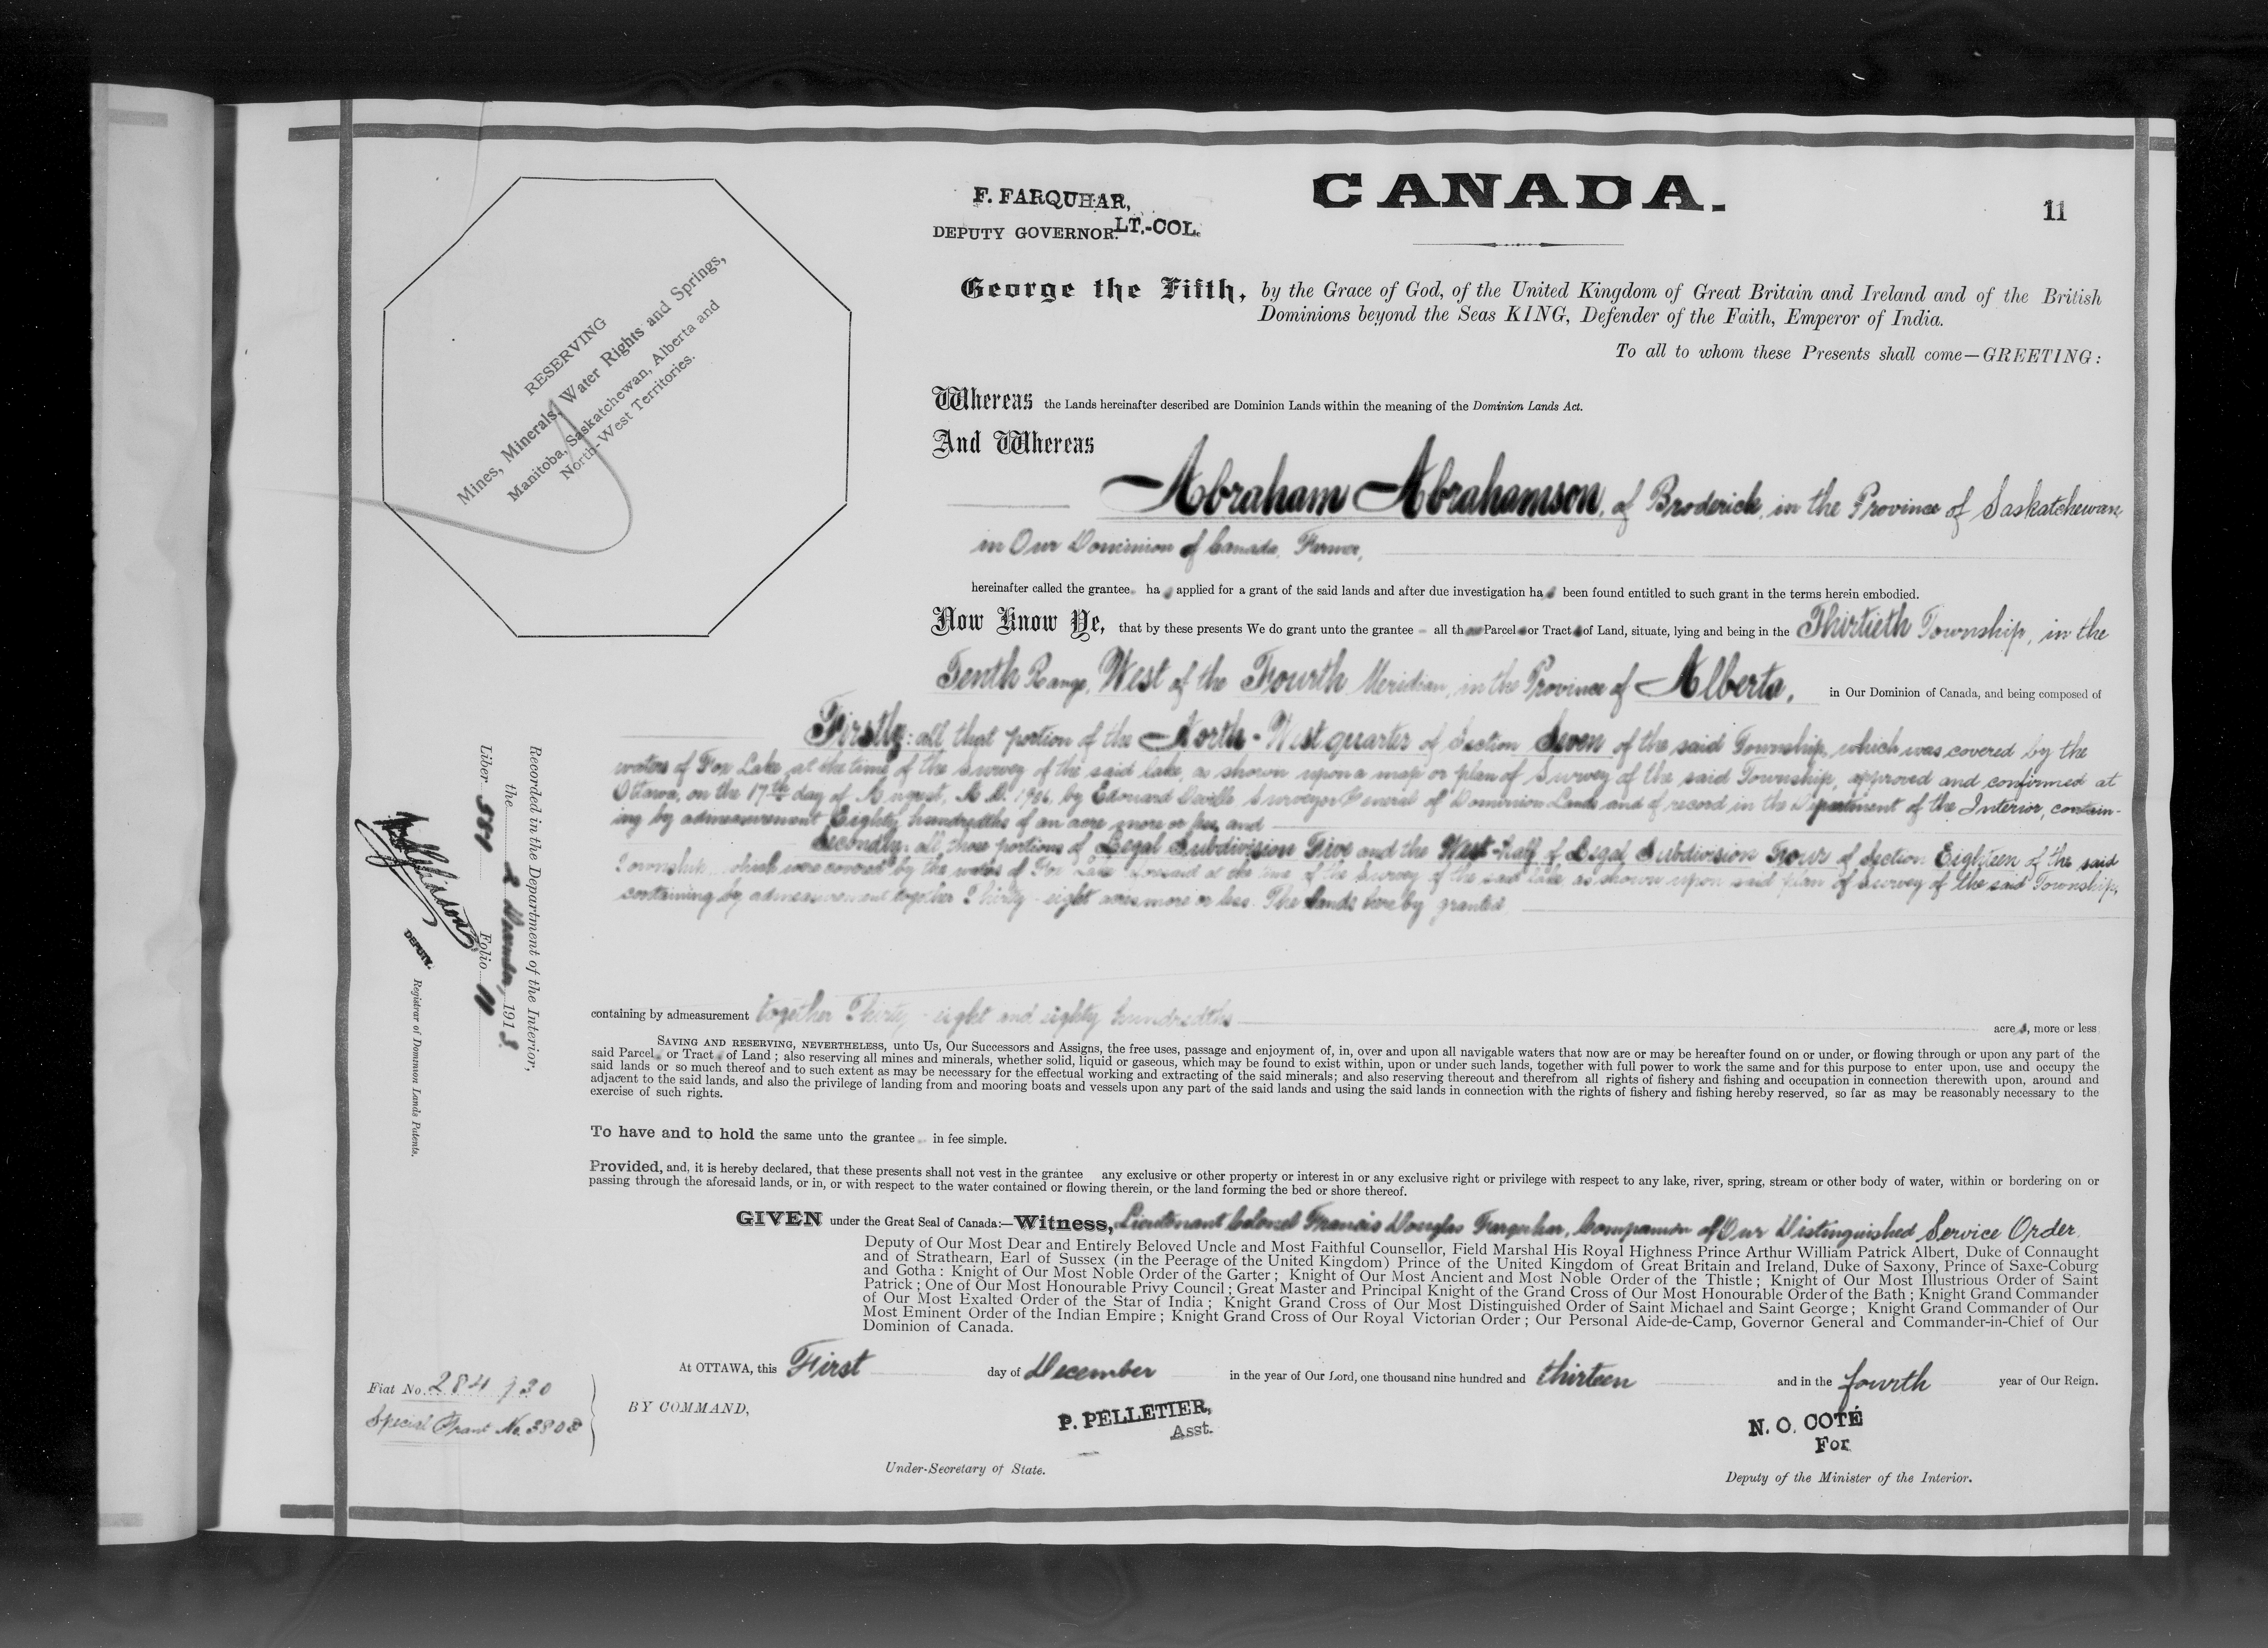 F. FARQUHAR,
DEPUTY GOVERNOR. LT.-COL.
CANADA.
11
George the Fifth, by the Grace of God, of the United Kingdom of Great Britain and Ireland and of the British
Dominions beyond the Seas KING, Defender of the Faith, Emperor of India.
To all to whom these Presents shall come—GREETING:
RESERVING
Mines, Minerals, Water Rights and Springs,
Manitoba, Saskatchewan, Alberta and
North-West Territories.
Whereas the Lands hereinafter described are Dominion Lands within the meaning of the Dominion Lands Act.
And Whereas
Abraham Abrahamson, of Broderick, in the Province of Saskatchewan,
in Our Dominion of Canada, Farmer,
hereinafter called the grantee ha s applied for a grant of the said lands and after due investigation ha s been found entitled to such grant in the terms herein embodied.
Now Know Ye, that by these presents We do grant unto the grantee all those Parcels or Tracts of Land, situate, lying and being in the Thirtieth Township, in the
Tenth Range, West of the Fourth Meridian, in the Province of Alberta, in Our Dominion of Canada, and being composed of
Firstly: all that portion of the North-West quarter of Section Seven of the said Township, which was covered by the
waters of Fox Lake, at the time of the survey of the said lake, as shown upon a map or plan of survey of the said Township, approved and confirmed at
Ottawa, on the 17th day of August, A.D. 1906, by Edouard Deville Surveyor General of Dominion Lands and of record in the Department of the Interior, contain-
ing by admeasurement Eighty hundredths of an acre more or less, and
Secondly: all those portions of Legal Subdivision Five and the West-half of Legal Subdivision Four of Section Eighteen of the said
Township, which were covered by the waters of Fox Lake aforesaid at the time of the survey of the said lake, as shown upon said plan of survey of the said Township,
containing by admeasurement together Thirty-eight acres more or less. The lands hereby granted
containing by admeasurement together Thirty-eight and eighty hundredths acre s, more or less
SAVING AND RESERVING, NEVERTHELESS, unto Us, Our Successors and Assigns, the free uses, passage and enjoyment of, in, over and upon all navigable waters that now are or may be hereafter found on or under, or flowing through or upon any part of the
said Parcels or Tracts of Land; also reserving all mines and minerals, whether solid, liquid or gaseous, which may be found to exist within, upon or under such lands, together with full power to work the same and for this purpose to enter upon, use and occupy the
said lands or so much thereof and to such extent as may be necessary for the effectual working and extracting of the said minerals; and also reserving thereout and therefrom all rights of fishery and fishing and occupation in connection therewith upon, around and
adjacent to the said lands, and also the privilege of landing from and mooring boats and vessels upon any part of the said lands and using the said lands in connection with the rights of fishery and fishing hereby reserved, so far as may be reasonably necessary to the
exercise of such rights.
To have and to hold the same unto the grantee in fee simple.
Provided, and, it is hereby declared, that these presents shall not vest in the grantee any exclusive or other property or interest in or any exclusive right or privilege with respect to any lake, river, spring, stream or other body of water, within or bordering on or
passing through the aforesaid lands, or in, or with respect to the water contained or flowing therein, or the land forming the bed or shore thereof.
GIVEN under the Great Seal of Canada:—Witness, Lieutenant Colonel Francis Douglas Farquhar, Companion of Our Distinguished Service Order,
Deputy of Our Most Dear and Entirely Beloved Uncle and Most Faithful Counsellor, Field Marshal His Royal Highness Prince Arthur William Patrick Albert, Duke of Connaught
and of Strathearn, Earl of Sussex (in the Peerage of the United Kingdom) Prince of the United Kingdom of Great Britain and Ireland, Duke of Saxony, Prince of Saxe-Coburg
and Gotha: Knight of Our Most Noble Order of the Garter; Knight of Our Most Ancient and Most Noble Order of the Thistle; Knight of Our Most Illustrious Order of Saint
Patrick; One of Our Most Honourable Privy Council; Great Master and Principal Knight of the Grand Cross of Our Most Honourable Order of the Bath; Knight Grand Commander
of Our Most Exalted Order of the Star of India; Knight Grand Cross of Our Most Distinguished Order of Saint Michael and Saint George; Knight Grand Commander of Our
Most Eminent Order of the Indian Empire; Knight Grand Cross of Our Royal Victorian Order; Our Personal Aide-de-Camp, Governor General and Commander-in-Chief of Our
Dominion of Canada.
At OTTAWA, this First day of December in the year of Our Lord, one thousand nine hundred and thirteen and in the fourth year of Our Reign.
BY COMMAND,
P. PELLETIER,
Asst.
Under-Secretary of State.
N. O. COTÉ
For
Deputy of the Minister of the Interior.
Recorded in the Department of the Interior,
the 2 December, 1913.
Liber Folio 11
DEPUTY.
Registrar of Dominion Lands Patents.
Fiat No. 284930
Special Grant No. 3808